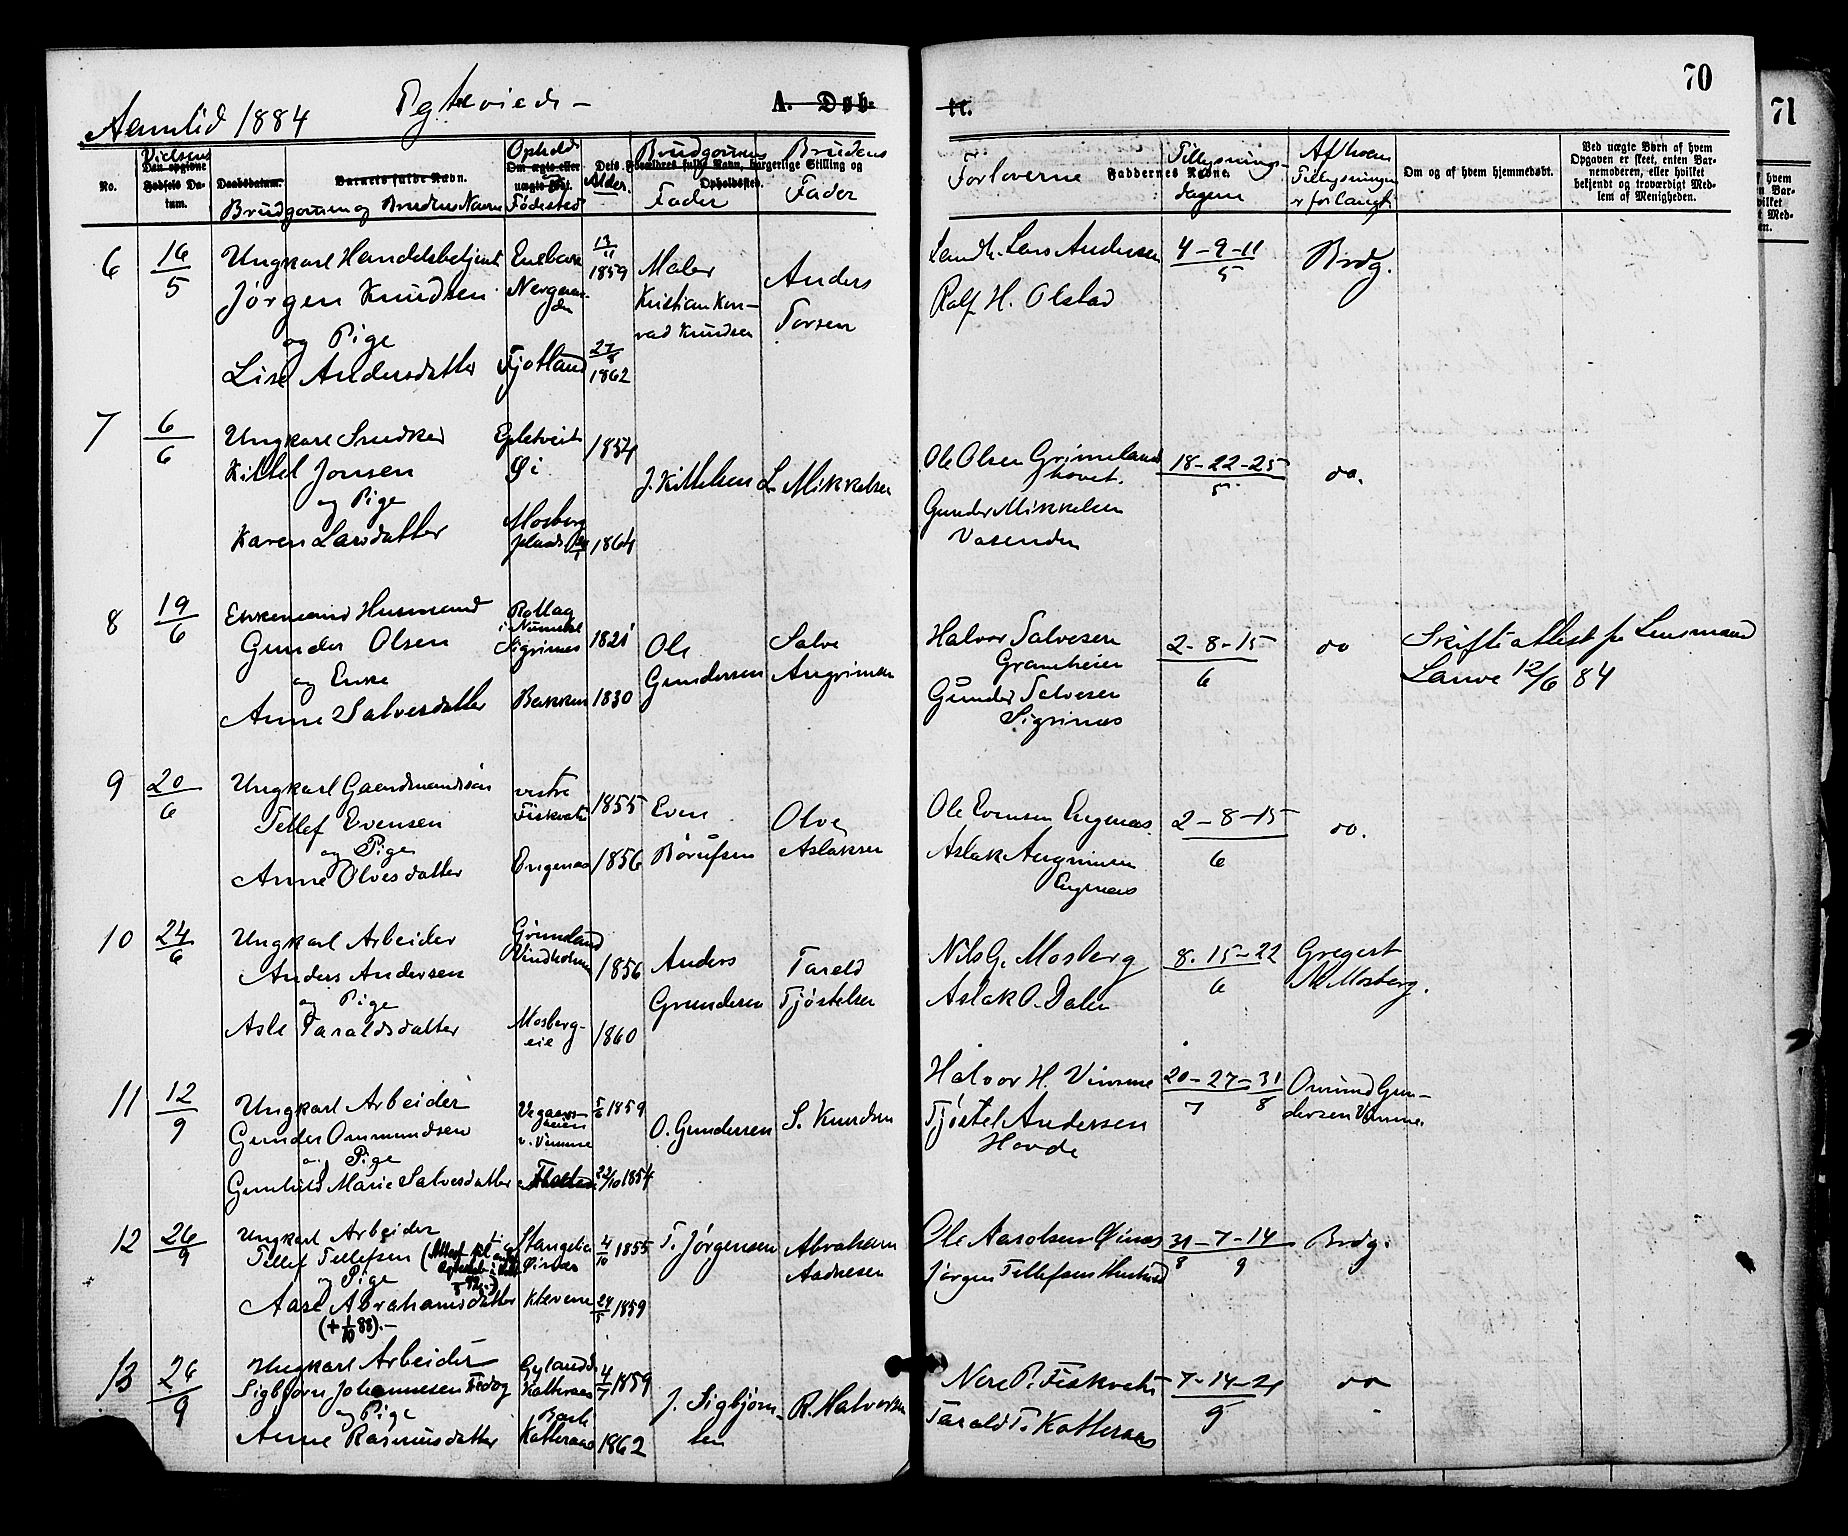 70
71
Aamlid 1884
Ægteviede -
A. Døb-
te.
No.
Vielsens
Den opgivne Fødsels Datum.
Daabsdatum.
Barnets fulde Navn.
Brudgommen og Brudens Navne
Ophold
Om ægte eller uægte Født.
Fødested
Dets Forældres fulde Navn, borgerlige Stilling og Opholdssted.
Alder.
Brudgommens
Fader
Brudens
Fader
Forloverne
Faddernes Navne.
Tillysnings-
dagene
Af hvem
Tillysningen
er forlangt.
Om og af hvem hjemmedøbt.
Ved uægte Børn af hvem
Opgaven er skeet, enten Bar-
nemoderen, eller hvilket
bekjendt og troværdigt Med-
lem af Menigheden.
6
16/5
Ungkarl Handelsbetjent
Jørgen Knudsen
og Pige
Lise Andersdatter
Fjotland
1859
27/8
1862
Maler
Kristian Kon-
rad Knudsen
Anders
Torsen
Lars Andersen
Rolf H. Olstad
4-9-11
5
Brdg.
7
6/6
Ungkarl Snedker
Kittel Jonsen
og Pige
Karen Larsdatter
Øi
Mosberg
plads
1854
1864
J. Kittelsen
L Mikkelsen
Ole Olsen Grimeland
hovet.
Gunder Mikkelsen
Vasenden
18-22-25
5
do.
8
19/6
Enkemand Husmand
Gunder Olsen
og Enke
Anne Salvesdatter
Rollag
i Numedal
Sigrinæs
Bakken
1821
1830
Ole
Gundersen
Salve
Angrimsen
Halvor Salvesen
Gramheien
Gunder Salvesen
Sigrinæs
2-8-15
6
do
Skifteattest fra Lensmand
Lauve 12/6 84
9
20/6
Ungkarl Gaardmandssøn
Tellef Evensen
og Pige
Anne Olvesdatter
vestre
Fiskvatn
Engenæs
1855
1856
Even
Børufsen
Olve
Aslaksen
Ole Evensen Engenæs
Aslak Angrimsen
Engenæs
2-8-15
6
do.
10
24/6
Ungkarl Arbeider
Anders Andersen
og Pige
Asle Taraldsdatter
Grimeland
Vindholmen
Mosberg-
eie
1856
1860
Anders
Gundersen
Tarald
Tjøstelsen
Nils G. Mosberg
Aslak O. Dalen
8. 15-22
6
Gregert
N Mosberg.
11
12/9
Ungkarl Arbeider
Gunder Ommundsen
og Pige
Gunhild Marie Salvesdatter
v. Vimme
1859
22/10 1854
O. Gundersen
S. Knudsen
Halvor H. Vimme
Tjøstel Andersen
Hovde
20-27-31
7 8
Omund Gun-
dersen Vimme.
12
26/9
Ungkarl Arbeider
Tellef Tellefsen
og Pige
Aase Abrahamsdatter
(+ 1/10 88).-
Stangelia
Klevene
4/10 1855
24/5 1859
T. Jørgensen
Abraham
Aadnesen
Ole Aasolsen Øinæs
Jørgen Tellefsen Hustved
31-7-14
8 9
Brdg.
13
26/9
Ungkarl Arbeider
Sigbjørn Johannesen
og Pige
Anne Rasmusdatter
Gyland
Katteraas
Katteraas
4/7 1859
1862
J. Sigbjørn-
sen
R. Halvorsen
Nere P. Fiskvatn
Tarald T. Katteraas
7-14-21
9
do